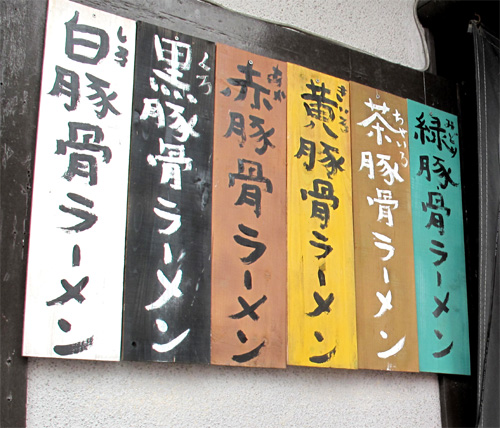 白豚骨ラーメン
しろ
黒豚骨ラーメン
くろ
赤豚骨ラーメン
あか
黄豚骨ラーメン
きいろ
茶豚骨ラーメン
ちゃいろ
緑豚骨ラーメン
みどり